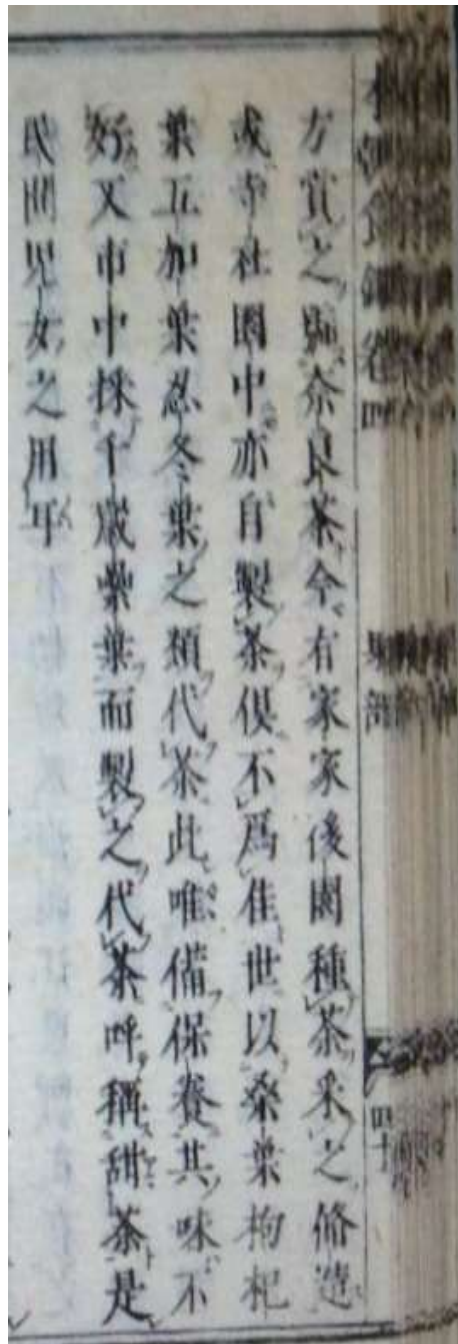 方賞之號奈良茶今有家家後園種茶采之脩造
或寺社園中亦自製茶俱不爲佳世以桑葉枸杞
葉五加葉忍冬葉之類代茶此唯備保養其味不
好又市中採千歲蘽葉而製之代茶呼稱甜茶是
民間兒女之用耳
本朝食鑑卷四
果部
四十